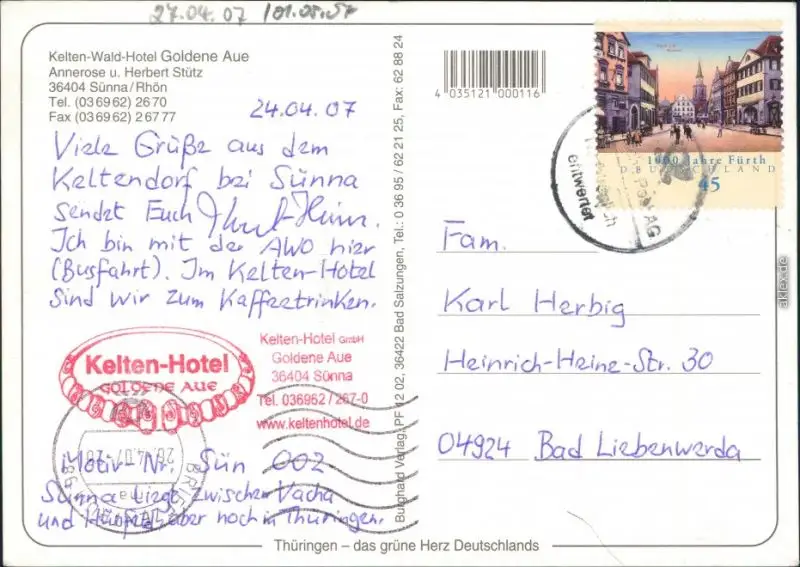 27.04.07 /01.05.07
Kelten-Wald-Hotel Goldene Aue
Annerose u. Herbert Stütz
36404 Sünna/Rhön
Tel. (03 69 62) 26 70
Fax (03 69 62) 2 67 77
24.04.07
Viele Grüße aus dem
Keltendorf bei Sünna
sendet Euch
Ich bin mit der AWO hier
(Busfahrt). Im Kelten-Hotel
sind wir zum Kaffeetrinken.
Kelten-Hotel
GOLDENE AUE
Kelten-Hotel GmbH
Goldene Aue
36404 Sünna
Tel. 036962 / 267-0
www.keltenhotel.de
Motiv-Nr. Sün 002
Sünna liegt zwischen Vacha
und Hünfeld, aber noch in Thüringen.
Burghard Verlag, PF 12 02, 36422 Bad Salzungen, Tel.: 0 36 95 / 62 21 25, Fax: 62 88 24
4 035121 000116
1000 Jahre Fürth
DEUTSCHLAND
45
AG
entwertet
Fam.
Karl Herbig
Heinrich-Heine-Str. 30
04924 Bad Liebenwerda
Thüringen – das grüne Herz Deutschlands
aklex.de